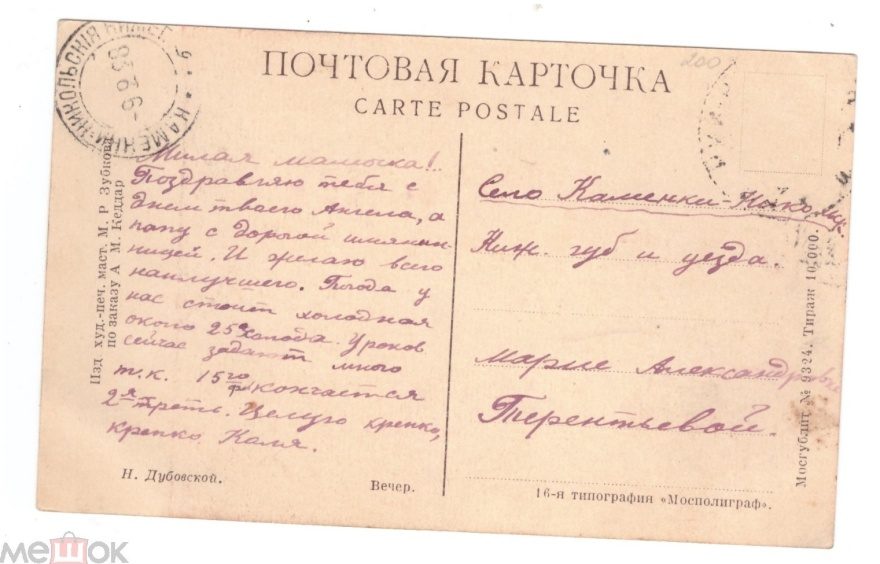 ПОЧТОВАЯ КАРТОЧКА
CARTE POSTALE
200
Милая мамочка!
Поздравляю тебя с
днем твоего Ангела, а
папу с дорогой имянин-
ницей. И желаю всего
наилучшего. Погода у
нас стоит холодная
около 25° холода. Уроков
сейчас задают много
т.к. 15го кончается
2я треть. Целую крепко,
крепко Каля.
Село Каменки-Никольск.
Ниж. губ и уезда.
Марие Александровне
Терентьевой.
Изд худ.-печ. маст. М. Р Зубкова
по заказу А М. Кеддар
Н. Дубовской.
Вечер.
16-я типография «Мосполиграф».
Мосгублит № 9324. Тираж 10.000.
КАМЕНКИ-НИКОЛЬСКІЯ
мешок